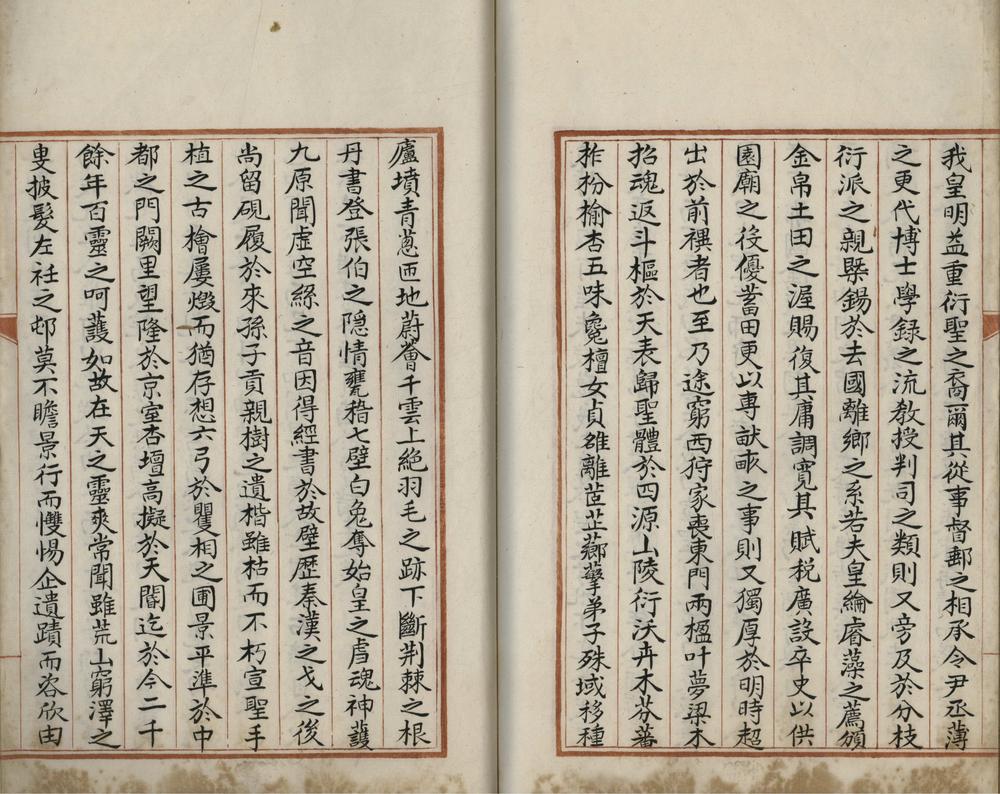 我皇明益重衍聖之裔爾其從事督郵之相承令尹丞薄
之更代博士學録之流教授判司之類則又旁及於分枝
衍派之親槩錫於去國離鄉之系若夫皇綸睿藻之薦頒
金帛土田之渥賜復其庸調寛其賦税廣設卒史以供
園廟之役優蓄田更以専畎畝之事則又獨厚於明時超
出於前禩者也至乃途窮西狩家喪東門兩楹叶夢梁木
招魂返斗樞於天表歸聖體於四源山陵衍沃卉木芬蕃
柞枌榆杏五味毚檀女貞雒離茝芷薌蕐弟子殊域移種
廬墳青蔥匝地蔚薈千雲上絶羽毛之跡下斷荆棘之根
丹書登張伯之隠情甕稽七璧白兔奪始皇之虐魂神護
九原聞虚空絲之音因得經書於故壁歴秦漢之戈之後
尚留硯履於來孫子貢親樹之遺楷雖枯而不朽宣聖手
植之古檜屢燬而猶存想六弓於矍相之圃景平凖於中
都之門闕里望隆於京室杏壇高擬於天閽迄於今二千
餘年百靈之呵護如故在天之靈爽常聞雖荒山窮澤之
叟披髮左衽之邨莫不瞻景行而戁惕企遺蹟而咨欣由